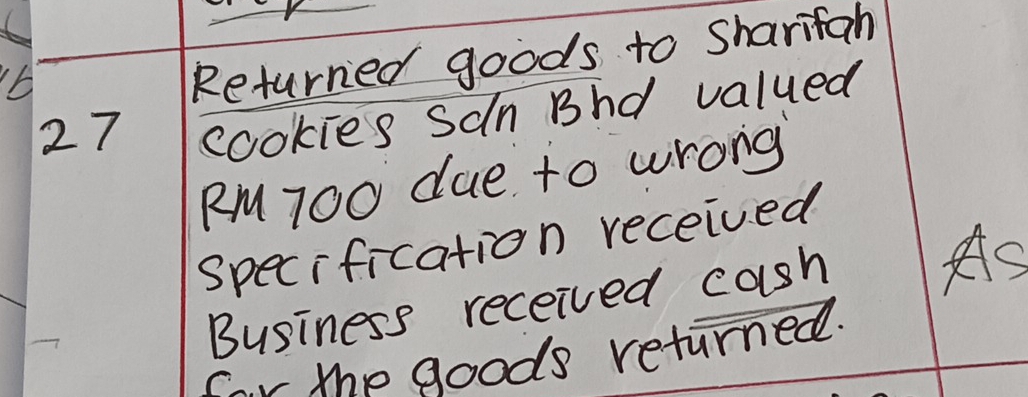 Returned goods to Sharifah
27
cookies Sdn Bhd valued
RM 700 due to wrong
specification received
As
Business received cash
for the goods returned.